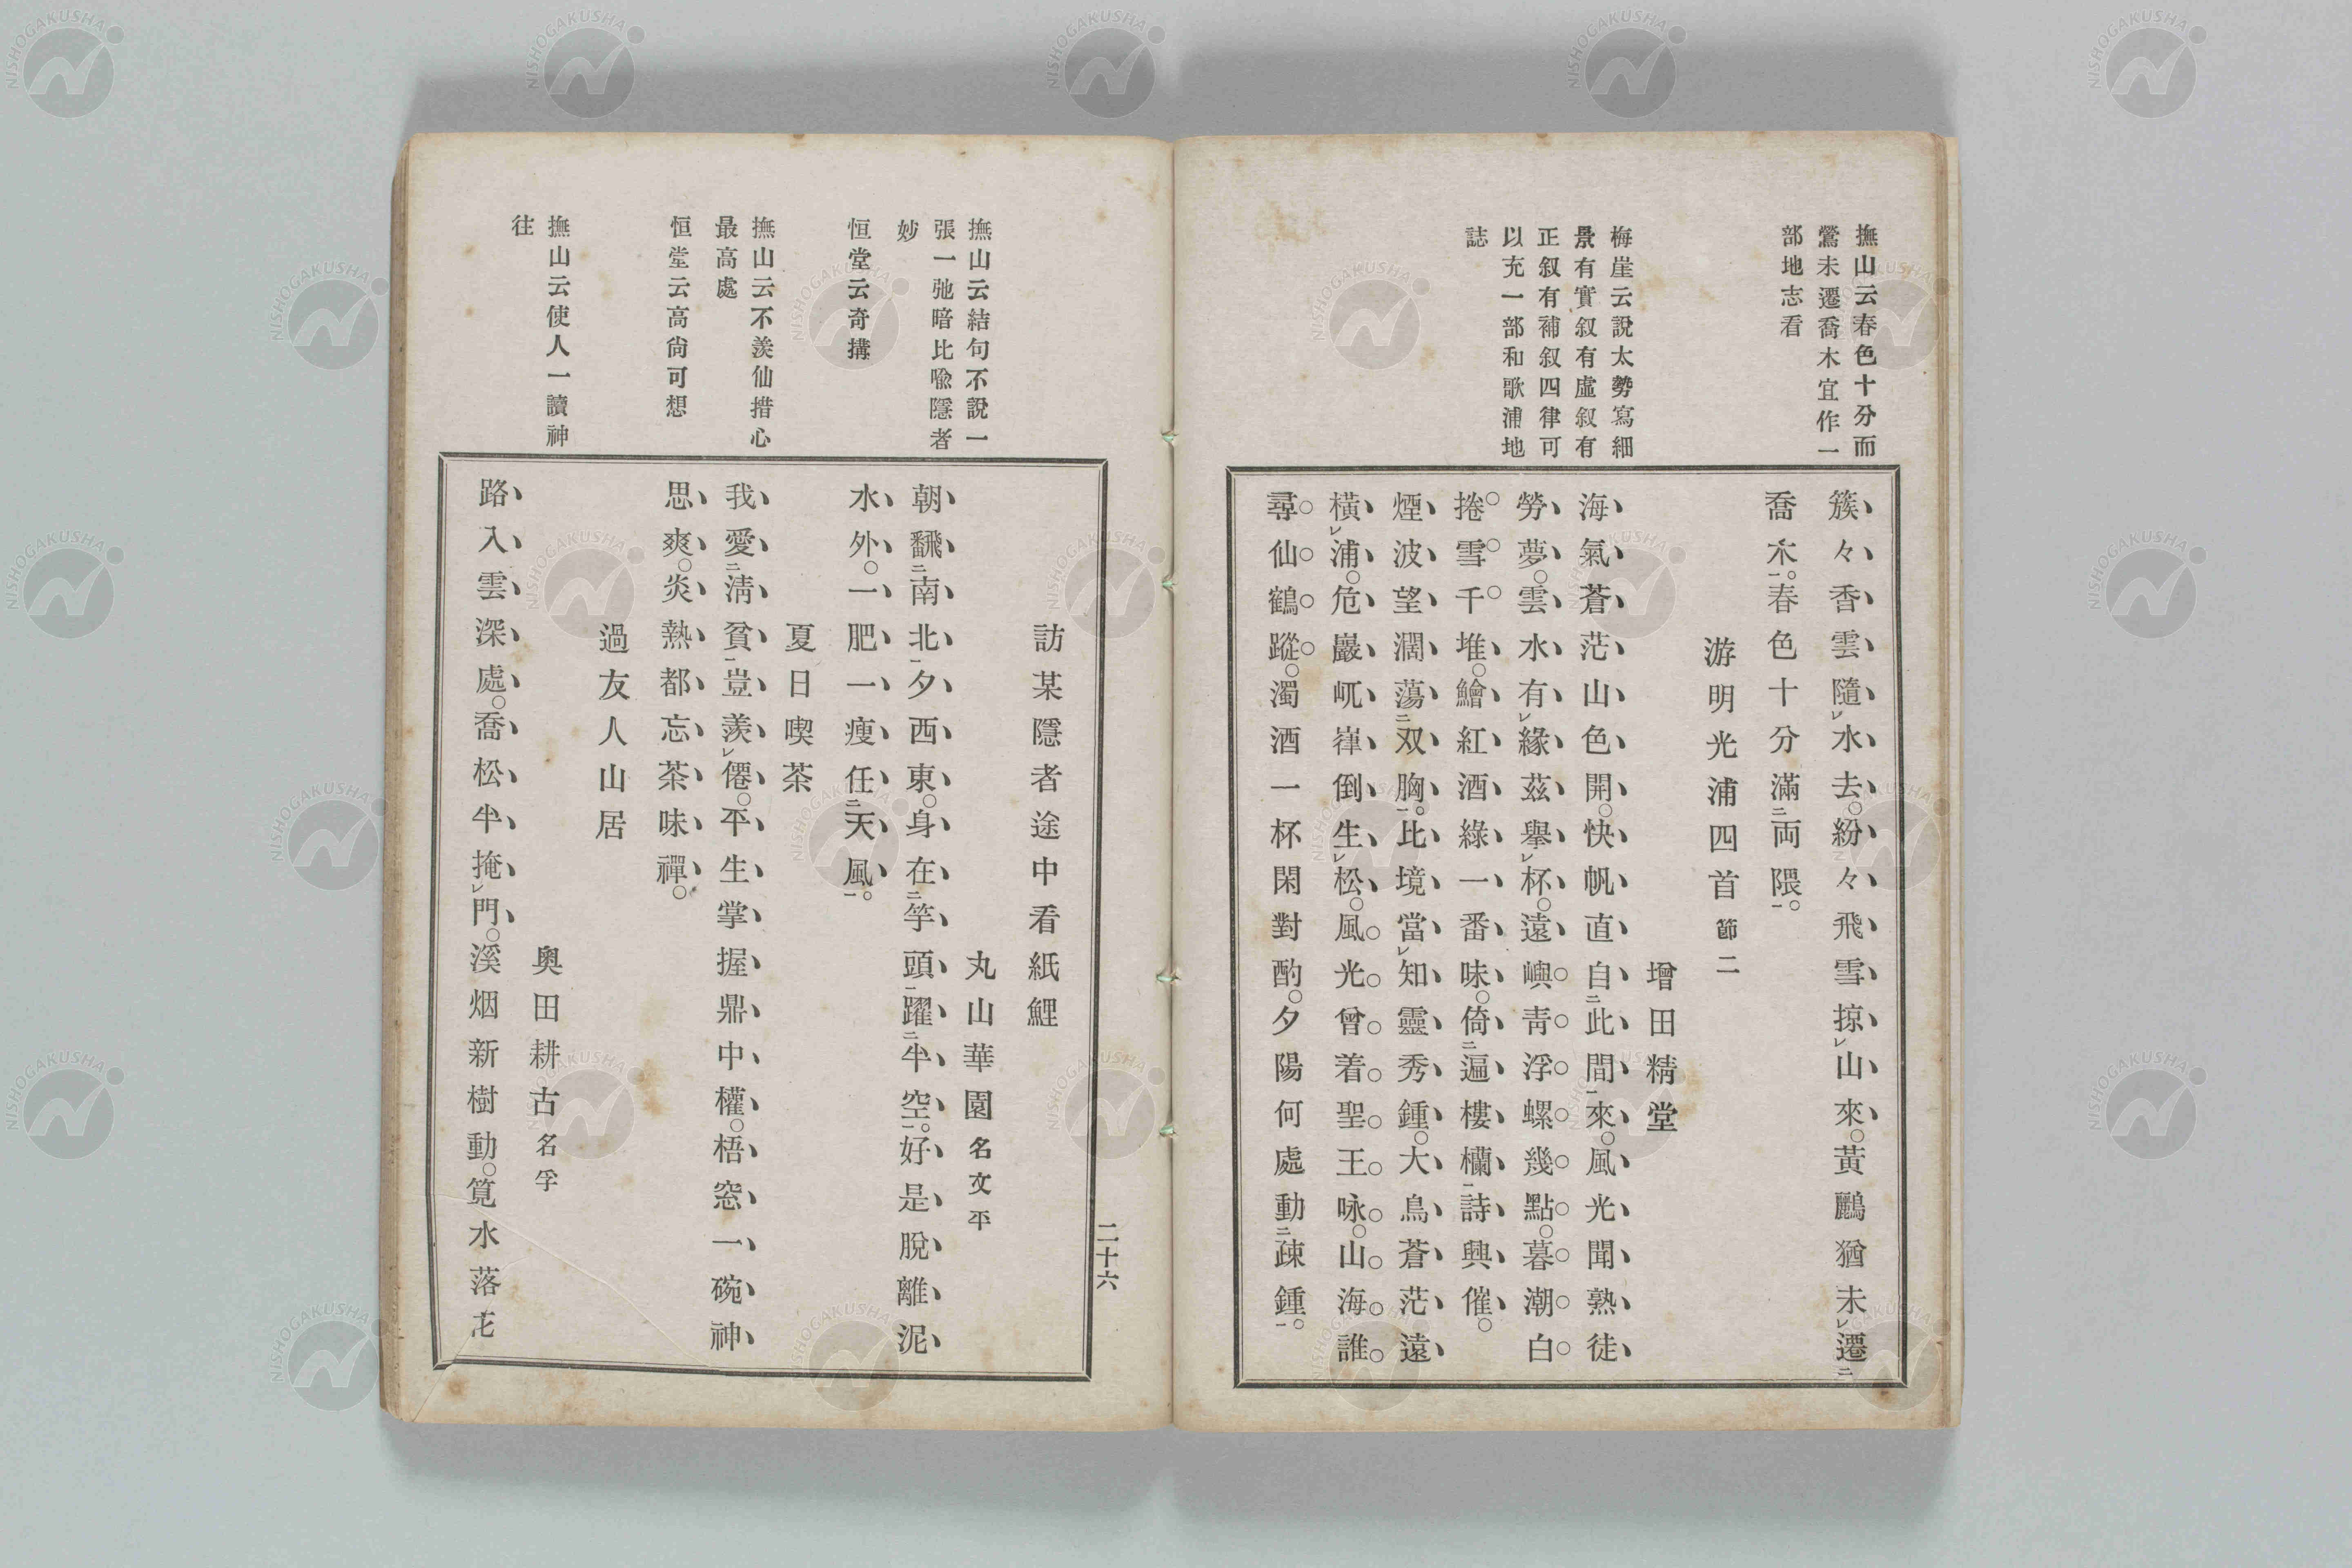 撫山云春色十分而
鶯未遷喬木宜作一
部地志看
梅崖云說太勢寫細
景有實叙有虛叙有
正叙有補叙四律可
以充一部和歌浦地
誌
簇々香雲隨レ水去。紛々飛雪掠レ山來。黃鸝猶未レ遷二
喬木一。春色十分滿二両隈一。
游明光浦四首節二
增田精堂
海氣蒼茫山色開。快帆直自二此間一來。風光聞熟徒
勞夢。雲水有レ緣茲擧レ杯。遠嶼靑浮螺幾點。暮潮白
捲雪千堆。鱠紅酒綠一番味。倚二遍樓欄一詩興催。
煙波望濶蕩二双胸一。比境當レ知靈秀鍾。大鳥蒼茫遠
橫レ浦。危巖屼嵂倒生レ松。風光曾着聖王咏。山海誰
尋仙鶴蹤。濁酒一杯閑對酌。夕陽何處動二疎鍾一。
撫山云結句不說一
張一弛暗比喩隱者
妙
恒堂云奇搆
撫山云不羨仙措心
最高處
恒堂云高尙可想
撫山云使人一讀神
往
訪某隱者途中看紙鯉
丸山華園名文平
朝飜二南北一夕西東。身在二竿頭一躍二半空一。好是脫離泥
水外。一肥一瘦任二天風一。
夏日喫茶
我愛二淸貧一豈羨レ僊。平生掌握鼎中權。梧窓一碗神
思爽。炎熱都忘茶味禪。
過友人山居
奧田耕古名孚
路入雲深處。喬松半掩レ門。溪烟新樹動。筧水落花
二十六
NISHOGAKUSHA